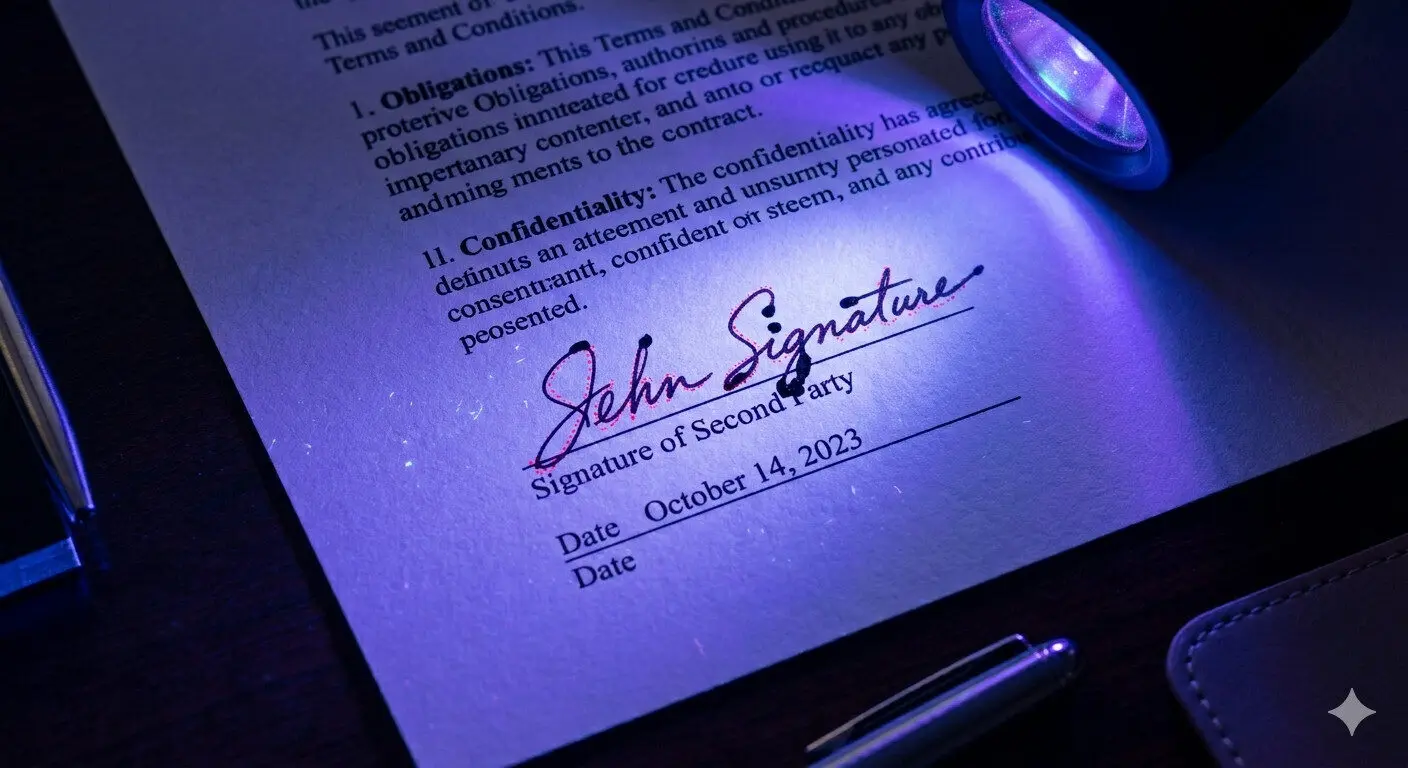 This seement of
Terms and Conditions.
1. Obligations: This Terms and Conditi
proterive Obligations, authorins and procedures
obligations innuteated for credure using it to any ob
impertanary contenter, and anto or recquact any p
andming ments to the contract.
11. Confidentiality: The confidentiality has agree
definuts an atteement and unsurnty personated for
consentrantt, confident oir steem, and any contribu
peosented.
Jehn Signature
Signature of Second Party
Date October 14, 2023
Date